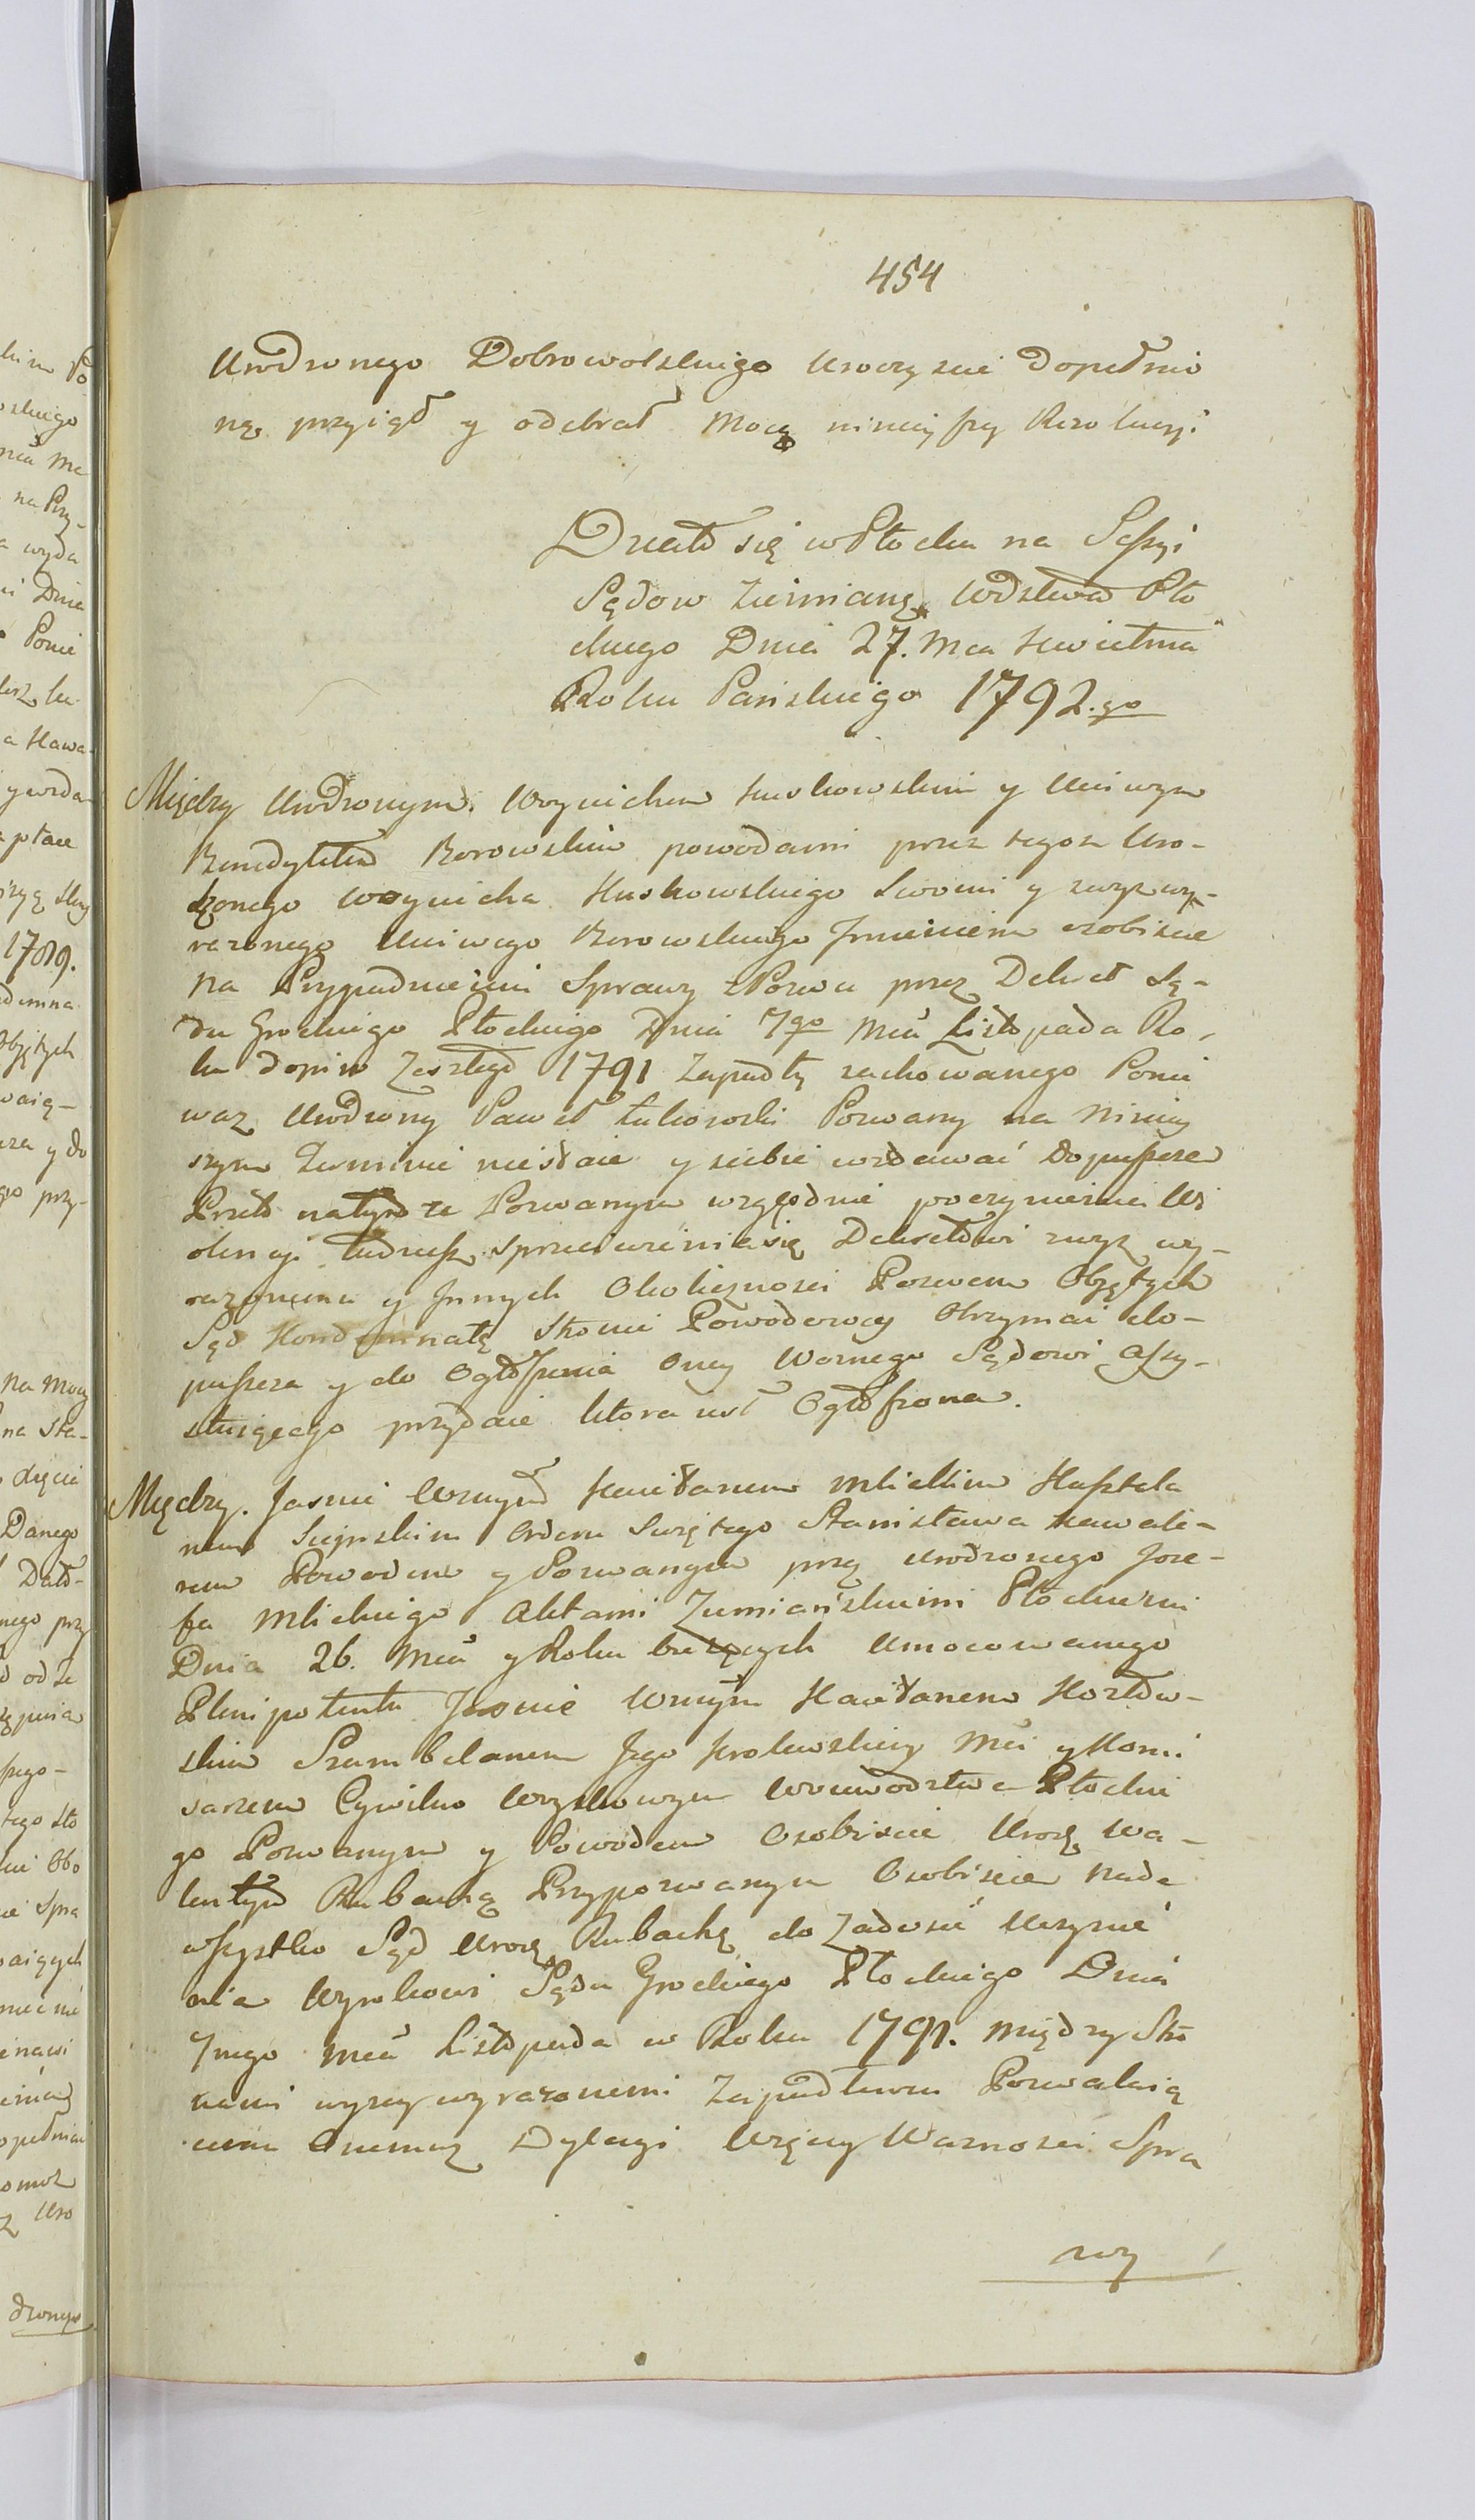 454
Urodzonego Dobrowolskiego Uroczyscie dopełnio
ną przyiął y odebrał Mocą ninieyszey Rezolucyi
Działo się w Płocku na Sessyi
Sądow Ziemiang Wdztwa Pło
ckiego Dnia 27. Mca Kwietnia
Roku Pańskiego 1792.go
Między Urodzonym Woyciechem Kuskowskim y Uczciwym
Benedyktem Borowskim powodami przez tegosz Uro-
dzonego Woyciecha Kuskowskiego Swoim y zwysz wy-
razonego Uczciwego Borowskiego Jmieniem osobiscie
Na Przypadnieniu Sprawy z Pozwu przez Dekret Są-
du Grodzkiego Płockiego Dnia 7go Mca Listopada Ro-
ku dopiro Zeszłego 1791 Zapadły zachowanego Ponie
waz Urodzony Paweł Łukowski Pozwany na Niniey
szym Terminie niestaie y siebie wzdawać Dopuszcza
Przeto natymze Pozwanym względnie poczynienia Wi
olencyi tudziesz sprzeciwienia się Dekretowi zwyz wy-
razonemu y Jnnych Okolicznosci Pozwem Objętych
Sąd Kondemnatę Stronie Powodowey Otrzymać do-
puszcza y do Ogłoszenia Oney Woznego Sądowi Assy-
stuiącego przydaie ktora iest Ogłoszona.
Między Jasnie Wmym Kaietanem Mlickim Kasztela
nem Sierpskim Orderu Swiętego Stanisława Kawale-
rem Powodem y Pozwanym przez Urodzonego Joze-
fa Mlickiego Aktami Ziemiańskiemi Płockiemi
Dnia 26. Mca y Roku bieżących Umocowanego
Plenipotenta Jasnie Wmym Kaietanem Kozłow-
skim Szambelanem Jego Krolewskiey Mci y Komi
sarzem Cywilno Woyskowym Woiewodztwa Płockie
go Pozwanym y Powodem Osobiscie Urod. Wa-
lentym Rubachą Przypozwanym Osobiscie nade
wszystko Sąd Urod. Rubachę do Zadosić Uczynie
nia Wyrokowi Sądu Grodzkiego Płockiego Dnia
7mego Mca Listopada w Roku 1791. między Stro
nami wyzey wyrazonemi Zapadłemu Pozwalaią
cemu Onemuz Dylacyi Wzięcey Waznosci Spra
wy